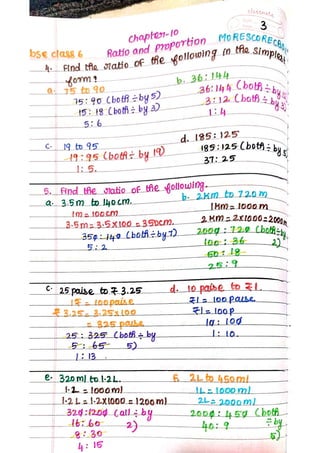 classmate
3
Chapter-10 MORESCORECBSE
bse class 6 Ratio and proportion
4. Find the ratio of the following in the simplest
form?
a. 75 to 90
75:90 (both ÷ by 5)
15:18 (both ÷ by 3)
5:6
b. 36:144
36:144 (both ÷ by
3:12 (both ÷ by 3)
1:4
c. 19 to 95
19:95 (both ÷ by 19)
1:5.
d. 185:125
185:125 (both ÷ by 5)
37:25
5. Find the ratio of the following.
a. 3.5m to 140cm.
1m = 100cm
3.5m = 3.5×100 = 350cm.
350:140 (both ÷ by 7)
5:2
b. 2km to 720m
1Km = 1000m
2KM = 2×1000 = 2000m
2000:720 (both ÷ by
100:36 2)
50:18
25:9
c. 25 paise to ₹3.25
1₹ = 100paise
₹3.25 = 3.25×100
= 325 paise
25:325 (both ÷ by
5:65 5)
1:13
d. 10 paise to ₹1.
₹1 = 100 paise
₹1 = 100p
10:100
1:10.
e. 320ml to 1.2L.
1.L = 1000ml
1.2L = 1.2×1000 = 1200ml
320:1200 (all ÷ by
16:60 2)
8:30
4:15
f. 2L to 450ml
1L = 1000ml
2L = 2000ml
2000:450 (both
40:9 ÷ by
5)